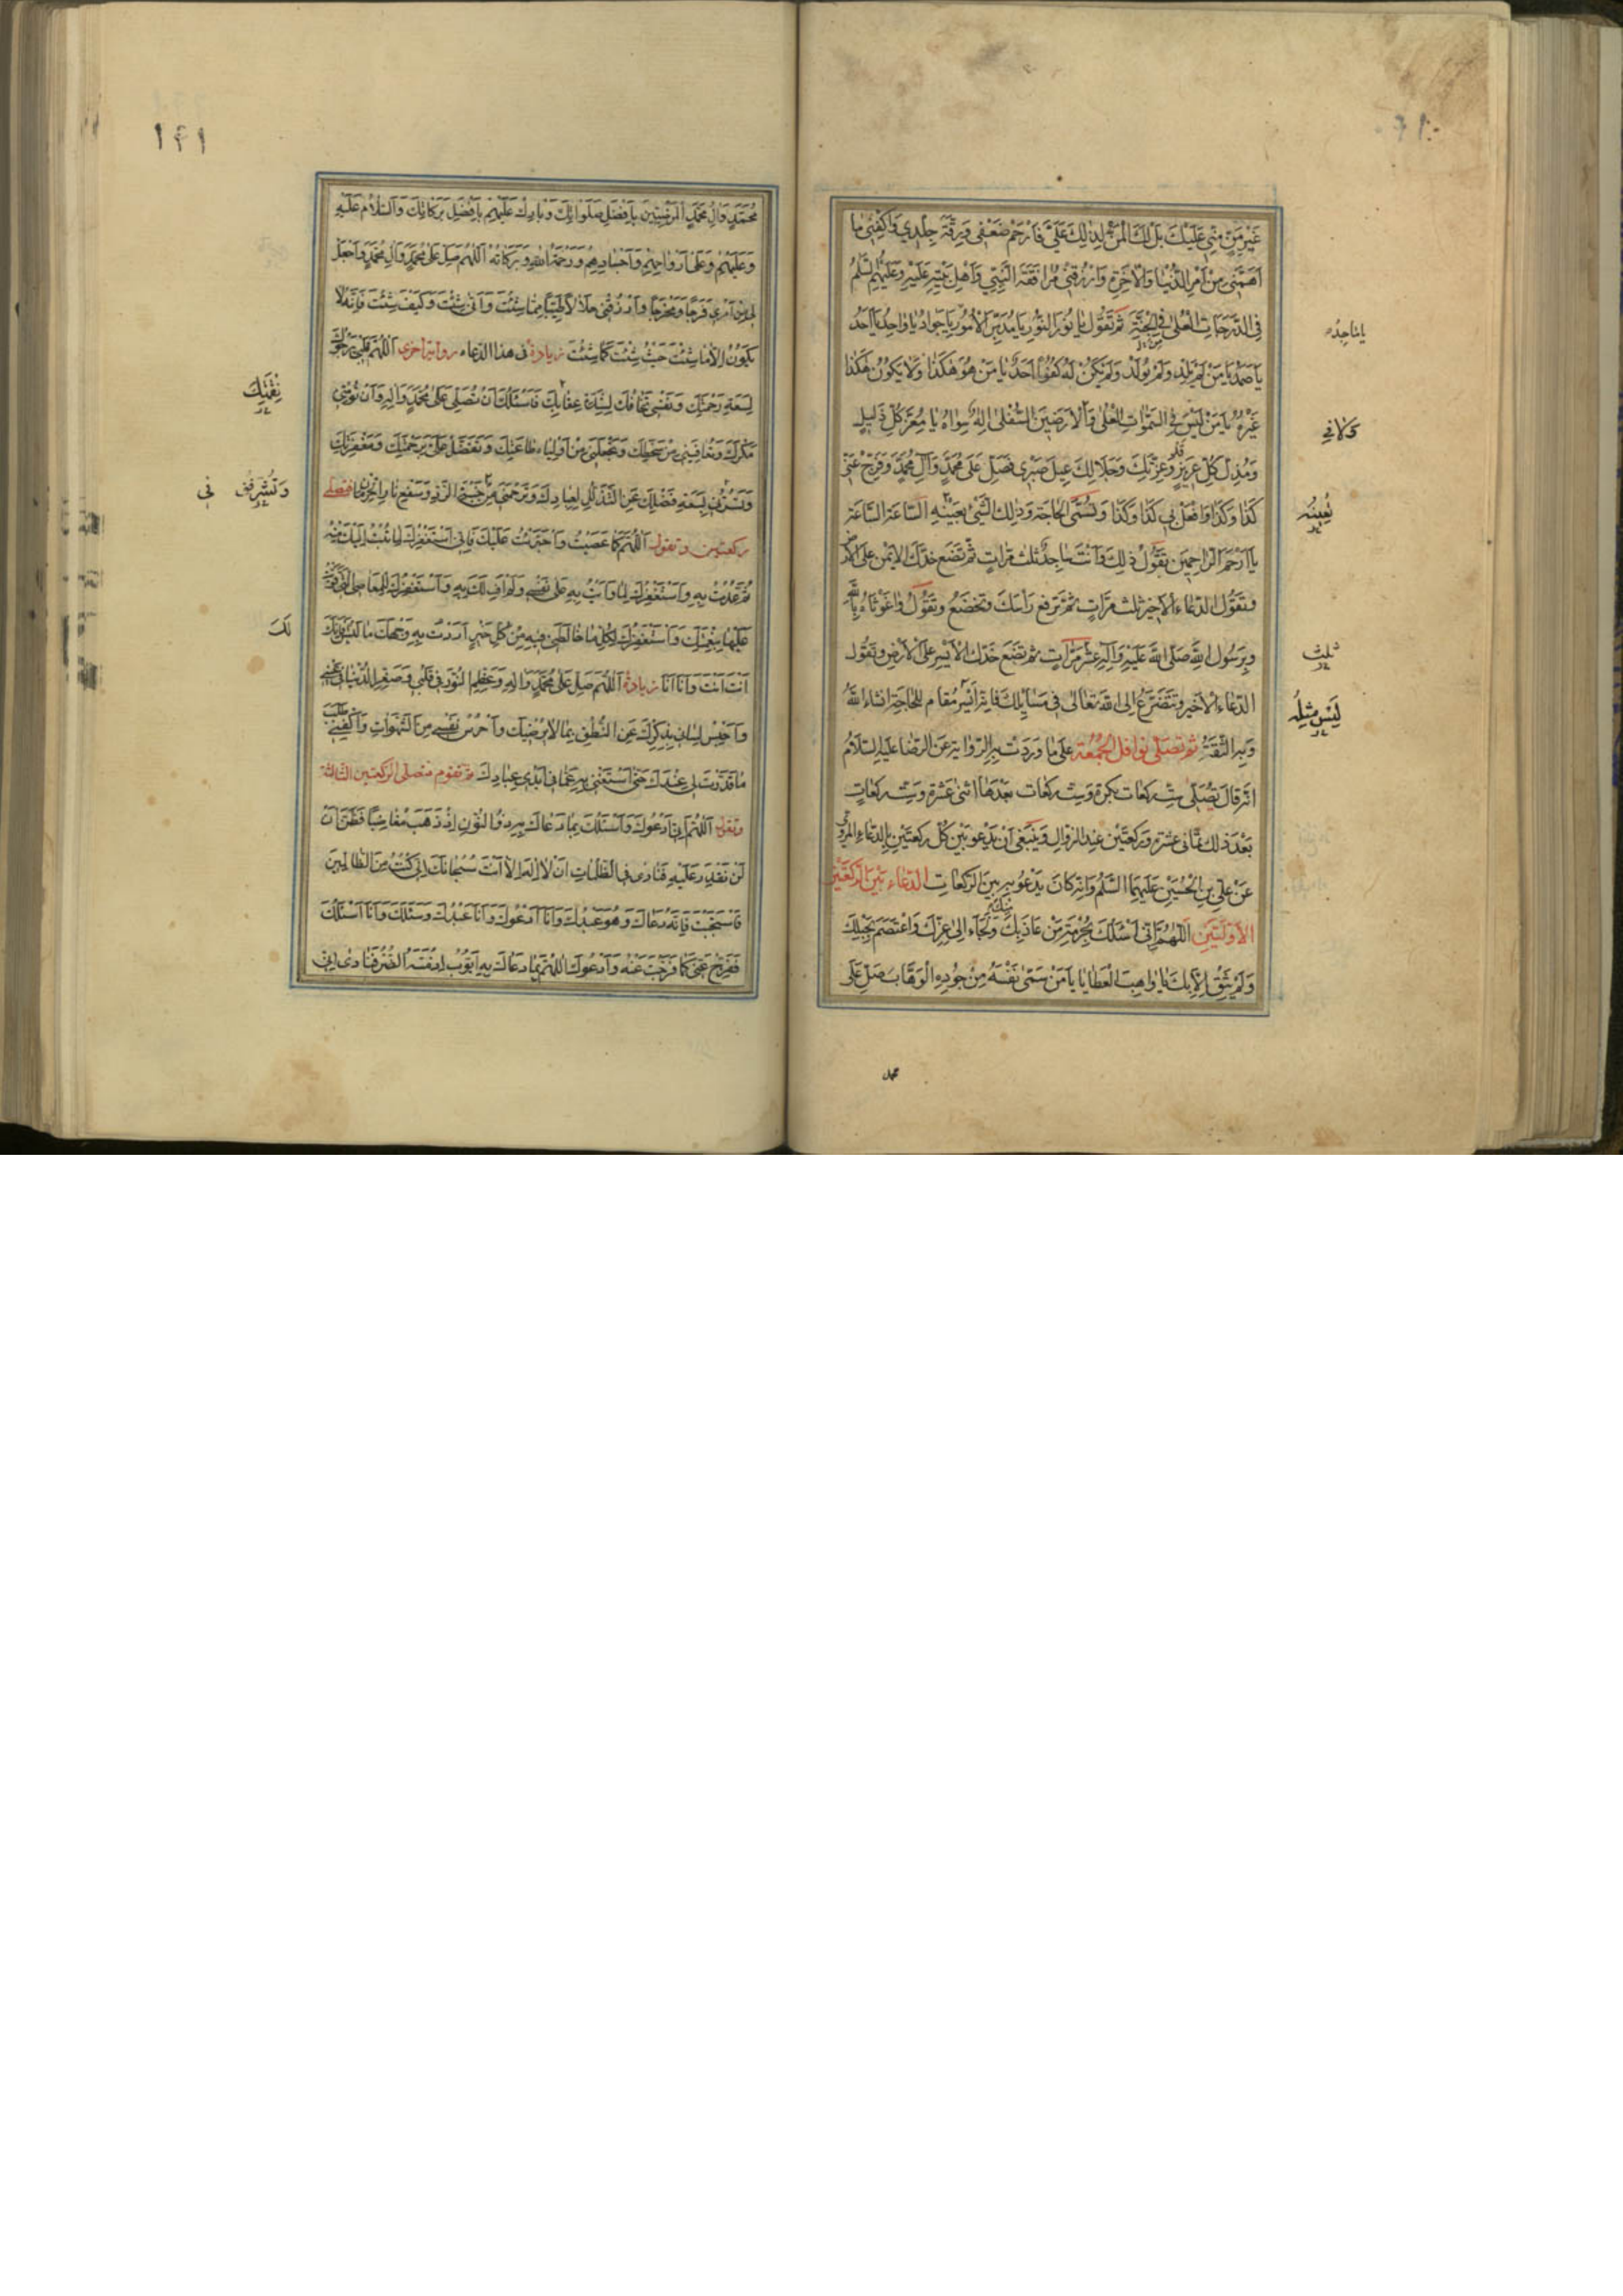 غَيْرِ مَنٍّ مِنّي عَلَيْكَ بَلْ لَكَ الْمَنُّ لِذلِكَ عَلَيَّ فَارْحَمْ ضَعْفي وَرِقَّةَ جِلْدي وَاكْفِنى ما
اَهَمَّنى مِنْ اَمْرِ الدُّنْيا وَالْآخِرَةِ وَارْزُقْنى مُرافَقَةَ النَّبِيِّ وَاَهْلِ بَيْتِهِ عَلَيْهِ وَعَلَيْهِمُ السَّلمُ
فِى الدَّرَجاتِ الْعُلى فِى الْجَنَّةِ ثم تَقُول يا نُورَ النُّورِ يا مُدَبِّرَ الْاُمُورِ يا جَوادُ يا واحِدُ يا اَحَدُ
يا صَمَدُ يا مَنْ لَمْ يَلِدْ وَلَمْ يُولَدْ وَلَمْ يَكُنْ لَهُ كُفُوًا اَحَدٌ يا مَنْ هُوَ هكَذا وَلا يَكُونُ هكَذا
غَيْرُهُ يا مَنْ لَيْسَ فِى السَّمواتِ الْعُلى وَالْاَرَضينَ السُّفْلى اِلهٌ سِواهُ يا مُعِزَّ كُلِّ ذَليلٍ
وَمُذِلَّ كُلِّ عَزيزٍ قد وَعِزَّتِكَ وَجَلالِكَ عيلَ صَبْري فَصَلِّ عَلى مُحَمَّدٍ وَآلِ مُحَمَّدٍ وَفَرِّجْ عَنّى
كَذا وَكَذا وَافْعَلْ بى كَذا وَكَذا وَتُسَمّى الحاجَة وَذلِكَ الشَّىْ بعَيْنه السّاعَة السّاعَة
يا اَرْحَمَ الرّاحِمينَ تَقُولُ ذلِكَ وَاَنْتَ ساجِدٌ ثلث مَرّاتٍ ثُمَّ تَضَع خدَّك الايْمن على الارض
وتقُول الدّعاء الاخير ثلث مرّاتٍ ثُمَّ ترفع رَاسَكَ وتخضَعُ وتقُول واغَوْثاهُ بِاللهِ
وبِرَسُولِ اللهِ صَلَّى اللهُ عَلَيْهِ وَآلِهِ عشْر مَرّاتٍ ثم تضَع خَدّك الاَيْسَر على الارض وتقُول
الدّعاء الاخير وتتضرّعُ الى اللهِ تعالى فى مَسايلك فانه اَيْسَر مُقام للحاجَة انشاء اللهُ
وَبِهِ الثّقَةُ ثم تصَلّى نوافل الجُمُعَة على ما وردت به الرّواية عَن الرّضا عليه السّلامُ
انّه قال تُصَلّى ستّ ركعات بكرة وستّ ركعات بعْدها اثنى عشْرة وستّ ركعاتٍ
بعْد ذلك ثمانى عشْرة وركعَتَيْن عِند الزوال وينبَغى اَنْ يَدْعو بَيْن كُلّ ركعتَيْن بالدّعاء المروىّ
عَن علىّ بن الحُسَيْن عَلَيْهِمَا السَّلمُ وانّه كانَ يَدْعُو به بين الركعات الدّعاء بَيْن الرّكعتَيْن
الاَوّلتَيْنِ اَللّهُمَّ اِنّى اَسْئَلُكَ بِحُرْمَةِ مَنْ عاذَ بِكَ مِنْكَ وَلَجَاَ اِلى عِزِّكَ وَاعْتَصَمَ بِحَبْلِكَ
وَلَمْ يَثِقْ اِلّا بِكَ يا واهِبَ الْعَطايا يا مَنْ سَمّى نَفْسَهُ مِنْ جُودِهِ الْوَهّابَ صَلِّ عَلى
محمد
يا ماجِدُ
نُعِينُه
ثلث
لَيْسَ مِثْلِهُ
١٤١
مُحَمَّدٍ وَآلِ مُحَمَّدٍ الْمَرْضِيّينَ بِاَفْضَلِ صَلَواتِكَ وَبارِكْ عَلَيْهِمْ بِاَفْضَلِ بَرَكاتِكَ وَالسَّلامُ عَلَيْهِ
وَعَلَيْهِمْ وَعَلى اَرْواحِهِمْ وَاَجْسادِهِمْ وَرَحْمَةُ اللهِ وَبَرَكاتُهُ اَللّهُمَّ صَلِّ عَلى مُحَمَّدٍ وَآلِ مُحَمَّدٍ وَاجْعَلْ
لى مِنْ اَمْرى فَرَجًا وَمَخْرَجًا وَارْزُقْنى حَلالًا طَيِّبًا مِمّا شِئْتَ وَاَنّى شِئْتَ وَكَيْفَ شِئْتَ فَاِنَّهُ لا
يَكُونُ اِلّا ما شِئْتَ حَيْثُ شِئْتَ كَما شِئْتَ زيادة فى هذا الدّعاء رواية اخرى اَللّهُمَّ قَلْبى يَرْجُوكَ
لِسَعَةِ رَحْمَتِكَ وَنَفْسى تَخافُكَ لِشِدَّةِ عِقابِكَ فَاَسْئَلُكَ اَنْ تُصَلِّىَ عَلى مُحَمَّدٍ وَآلِهِ وَاَنْ تُؤْمِنَنى
مَكْرَكَ وَتُعافِيَنى مِنْ سَخَطِكَ وَتَجْعَلَنى مِنْ اَوْلِياءِ طاعَتِكَ وَتَفَضَّلَ عَلَىَّ بِرَحْمَتِكَ وَمَغْفِرَتِكَ
وَتَسُرَّنى بِسَعَةِ فَضْلِكَ عَنِ التَّذَلُّلِ لِعِبادِكَ وَتَرْحَمَنى مِنْ خَيْبَةِ الرَّدِّ وَسَفْعِ نارِ الْحِرْمانِ فتصلّى
ركعتين وتقول اَللّهُمَّ كَما عَصَيْتُ وَاجْتَرَأْتُ عَلَيْكَ فَاِنّى اَسْتَغْفِرُكَ لِما تُبْتُ اِلَيْكَ مِنْهُ
ثُمَّ عُدْتُ فيهِ وَاَسْتَغْفِرُكَ لِما وَاَيْتُ بِهِ عَلى نَفْسى وَلَمْ اَفِ لَكَ بِهِ وَاَسْتَغْفِرُكَ لِلْمَعاصِى الَّتى قَوِيتُ
عَلَيْها بِنِعْمَتِكَ وَاَسْتَغْفِرُكَ لِكُلِّ ما خالَطَنى فيهِ مِنْ كُلِّ خَيْرٍ اَرَدْتُ بِهِ وَجْهَكَ ما لَيْسَ فَاِنَّكَ
اَنْتَ اَنْتَ وَاَنَا اَنَا زيادة اَللّهُمَّ صَلِّ عَلى مُحَمَّدٍ وَآلِهِ وَعَظِّمِ النُّورَ فى قَلْبى وَصَغِّرِ الدُّنْيا فى عَيْنى
وَاحْبِسْ لِسانى بِذِكْرِكَ عَنِ النُّطْقِ بِما لا يُرْضيكَ وَاحْرُسْ نَفْسى مِنَ الشَّهَواتِ وَاكْفِنى طَلَبَ
ما قَدَّرْتَ لى عِنْدَكَ حَتّى اَسْتَغْنِىَ بِهِ عَمّا فى اَيْدى عِبادِكَ ثم تقوم فتصلى الركعتين الثالثة
وتقول اَللّهُمَّ اِنّى اَدْعُوكَ وَاَسْئَلُكَ بِما دَعاكَ بِهِ ذُو النُّونِ اِذْ ذَهَبَ مُغاضِبًا فَظَنَّ اَنْ
لَنْ نَقْدِرَ عَلَيْهِ فَنادى فِى الظُّلُماتِ اَنْ لا اِلهَ اِلّا اَنْتَ سُبْحانَكَ اِنّى كُنْتُ مِنَ الظّالِمينَ
فَاسْتَجَبْتَ فَاِنَّهُ دَعاكَ وَهُوَ عَبْدُكَ وَاَنَا اَدْعُوكَ وَاَنَا عَبْدُكَ وَسَئَلَكَ وَاَنَا اَسْئَلُكَ
فَفَرِّجْ عَنّى كَما فَرَّجْتَ عَنْهُ وَاَدْعُوكَ اَللّهُمَّ بِما دَعاكَ بِهِ اَيُّوبُ اِذْ مَسَّهُ الضُّرُّ فَنادى اِنّى
نِقْمَتِكَ
وَتُشَرِّفَنى
لَكَ